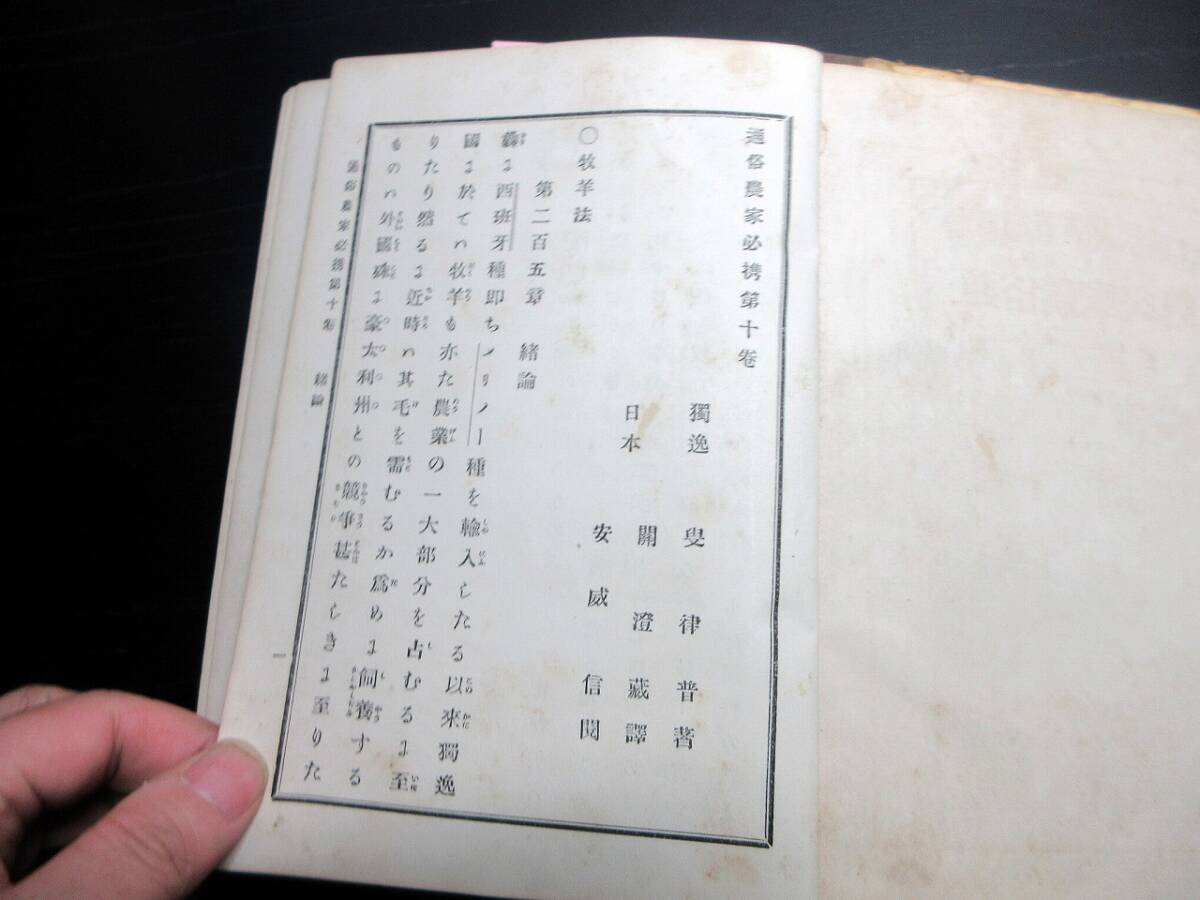 通俗農家必携第十卷
獨逸 叟律普著
日本 關澄藏譯
安威信閲
○牧羊法
第二百五章 緒論
に西班牙種即ちメリノー種を輸入したる以來獨逸
國に於てハ牧羊も亦た農業の一大部分を占むるに至
りたり然るに近時ハ其毛を需むるか爲めに飼養する
ものハ外國殊に豪太利州との競爭甚たしきに至りた
通俗農家必携第十卷 緒論
一